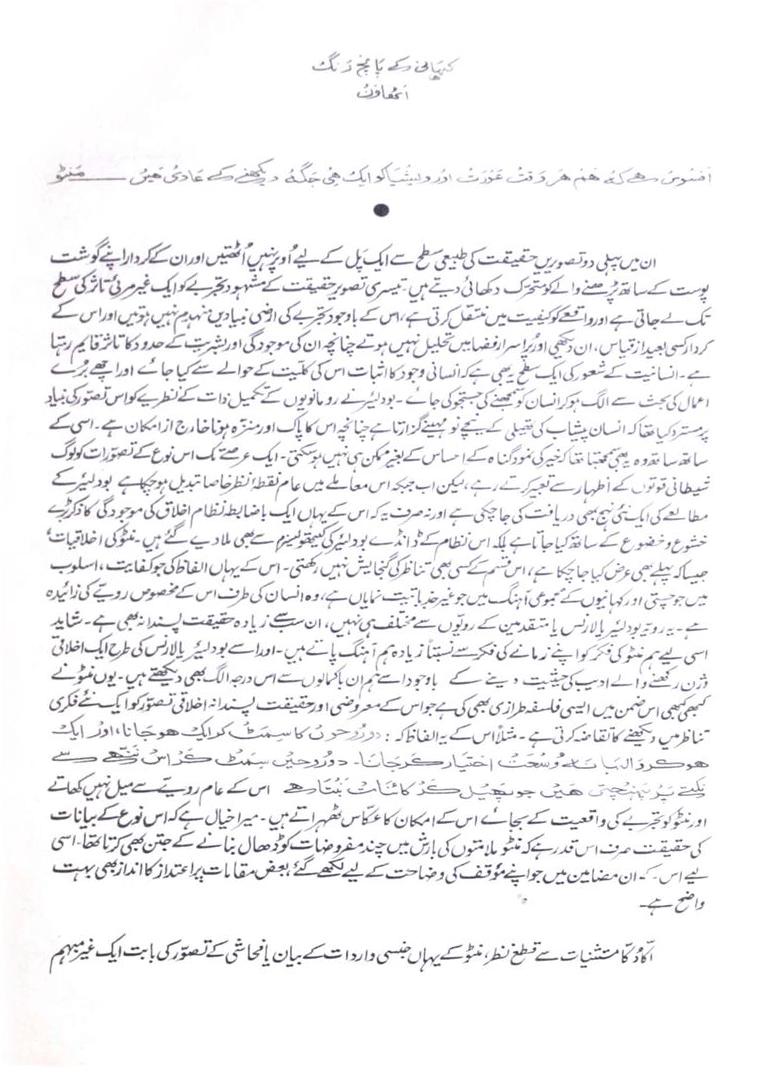 کہانی کے پانچ رنگ
افسوس ہے کہ ہم ہر وقت عورت اور ویشیا کو ایک ہی جگہ دیکھنے کے عادی ہیں ——— منٹو
ان میں پہلی دو تصویریں حقیقت کی طبیعی سطح سے ایک پل کے لیے اُوپر نہیں اُٹھتیں اور ان کے کردار اپنے گوشت
پوست کے ساتھ پڑھنے والے کو متحرک دکھائی دیتے ہیں۔ تیسری تصویر حقیقت کے مشہود تجربے کو ایک غیر مرئی تاثر کی سطح
تک لے جاتی ہے اور واقعے کو کیفیت میں منتقل کرتی ہے، اس کے باوجود تجربے کی ارضی بنیادیں منہدم نہیں ہوتیں اور اس کے
کردار کسی بعید از قیاس، ان دیکھی اور پُراسرار فضا میں تحلیل نہیں ہوتے چنانچہ ان کی موجودگی اور بشریت کے حدود کا تاثر قایم رہتا
ہے۔ انسانیت کے شعور کی ایک سطح یہ بھی ہے کہ انسانی وجود کا اثبات اس کی کلیت کے حوالے سے کیا جائے اور اچھے بُرے
اعمال کی بحث سے الگ ہو کر انسان کو سمجھنے کی جستجو کی جائے۔ بودلیئر نے رومانویوں کے تکمیل ذات کے نظریے کو اس تصور کی بنیاد
پر مسترد کیا تھا کہ انسان پیشاب کی تھیلی کے نیچے نو مہینے گزارتا ہے چنانچہ اس کا پاک اور منزہ ہونا خارج از امکان ہے۔ اسی کے
ساتھ ساتھ وہ یہ بھی سمجھتا تھا کہ خیر کی نمود گناہ کے احساس کے بغیر ممکن ہی نہیں ہو سکتی۔ ایک عرصے تک اس نوع کے تصورات کو لوگ
شیطانی قوتوں کے اظہار سے تعبیر کرتے رہے، لیکن اب جبکہ اس معاملے میں عام نقطۂ نظر خاصا تبدیل ہو چکا ہے بودلیئر کے
مطالعے کی ایک نئی نہج بھی دریافت کی جا چکی ہے اور نہ صرف یہ کہ اس کے یہاں ایک باضابطہ نظام اخلاق کی موجودگی کا ذکر بڑے
خشوع و خضوع کے ساتھ کیا جاتا ہے بلکہ اس نظام کے ڈانڈے بودلیئر کی کیتھولیزم سے بھی ملا دیے گئے ہیں۔ منٹو کی اخلاقیات
جیسا کہ پہلے بھی عرض کیا جا چکا ہے، اس قسم کے کسی بھی تناظر کی گنجایش نہیں رکھتی۔ اس کے یہاں الفاظ کی جو کفایت، اسلوب
میں جو چستی اور کہانیوں کے مجموعی آہنگ میں جو غیر جذباتیت نمایاں ہے، وہ انسان کی طرف اس کے مخصوص رویے کی زائیدہ
ہے۔ یہ رویہ بودلیئر یا لارنس یا متقدمین کے رویوں سے مختلف ہی نہیں، ان سب سے زیادہ حقیقت پسندانہ بھی ہے۔ شاید
اسی لیے ہم منٹو کی فکر کو اپنے زمانے کی فکر سے نسبتاً زیادہ ہم آہنگ پاتے ہیں۔ اور اسے بودلیئر یا لارنس کی طرح ایک اخلاقی
وژن رکھنے والے ادیب کی حیثیت دینے کے باوجود اسے ہم ان باکمالوں سے اس درجہ الگ بھی دیکھتے ہیں۔ یوں منٹو نے
کبھی کبھی اس ضمن میں ایسی فلسفہ طرازی بھی کی ہے جو اس کے معروضی اور حقیقت پسندانہ اخلاقی تصور کو ایک نئے فکری
تناظر میں دیکھنے کا تقاضہ کرتی ہے۔ مثلاً اس کے یہ الفاظ کہ : دو روحوں کا سمٹ کر ایک ہو جانا، اور ایک
ہو کر والہانہ وسعت اختیار کر جانا۔ دو روحیں سمٹ کر اس ننھے سے
نکتے پر پہنچتی ہیں جو پھیل کر کائنات بنتا ہے اس کے عام رویے سے میل نہیں کھاتے
اور منٹو کو تجربے کی واقعیت کے بجائے اس کے امکان کا عکاس ٹھہراتے ہیں۔ میرا خیال ہے کہ اس نوع کے بیانات
کی حقیقت صرف اس قدر ہے کہ منٹو ملامتوں کی بارش میں چند مفروضات کو ڈھال بنانے کے جتن بھی کرتا تھا۔ اسی
لیے اس کے ان مضامین میں جو اپنے مؤقف کی وضاحت کے لیے لکھے گئے، بعض مقامات پر اعتذار کا انداز بھی بہت
واضح ہے۔
اکا دُکا مستثنیات سے قطع نظر، منٹو کے یہاں جنسی واردات کے بیان یا فحاشی کے تصور کی بابت ایک غیر مبہم